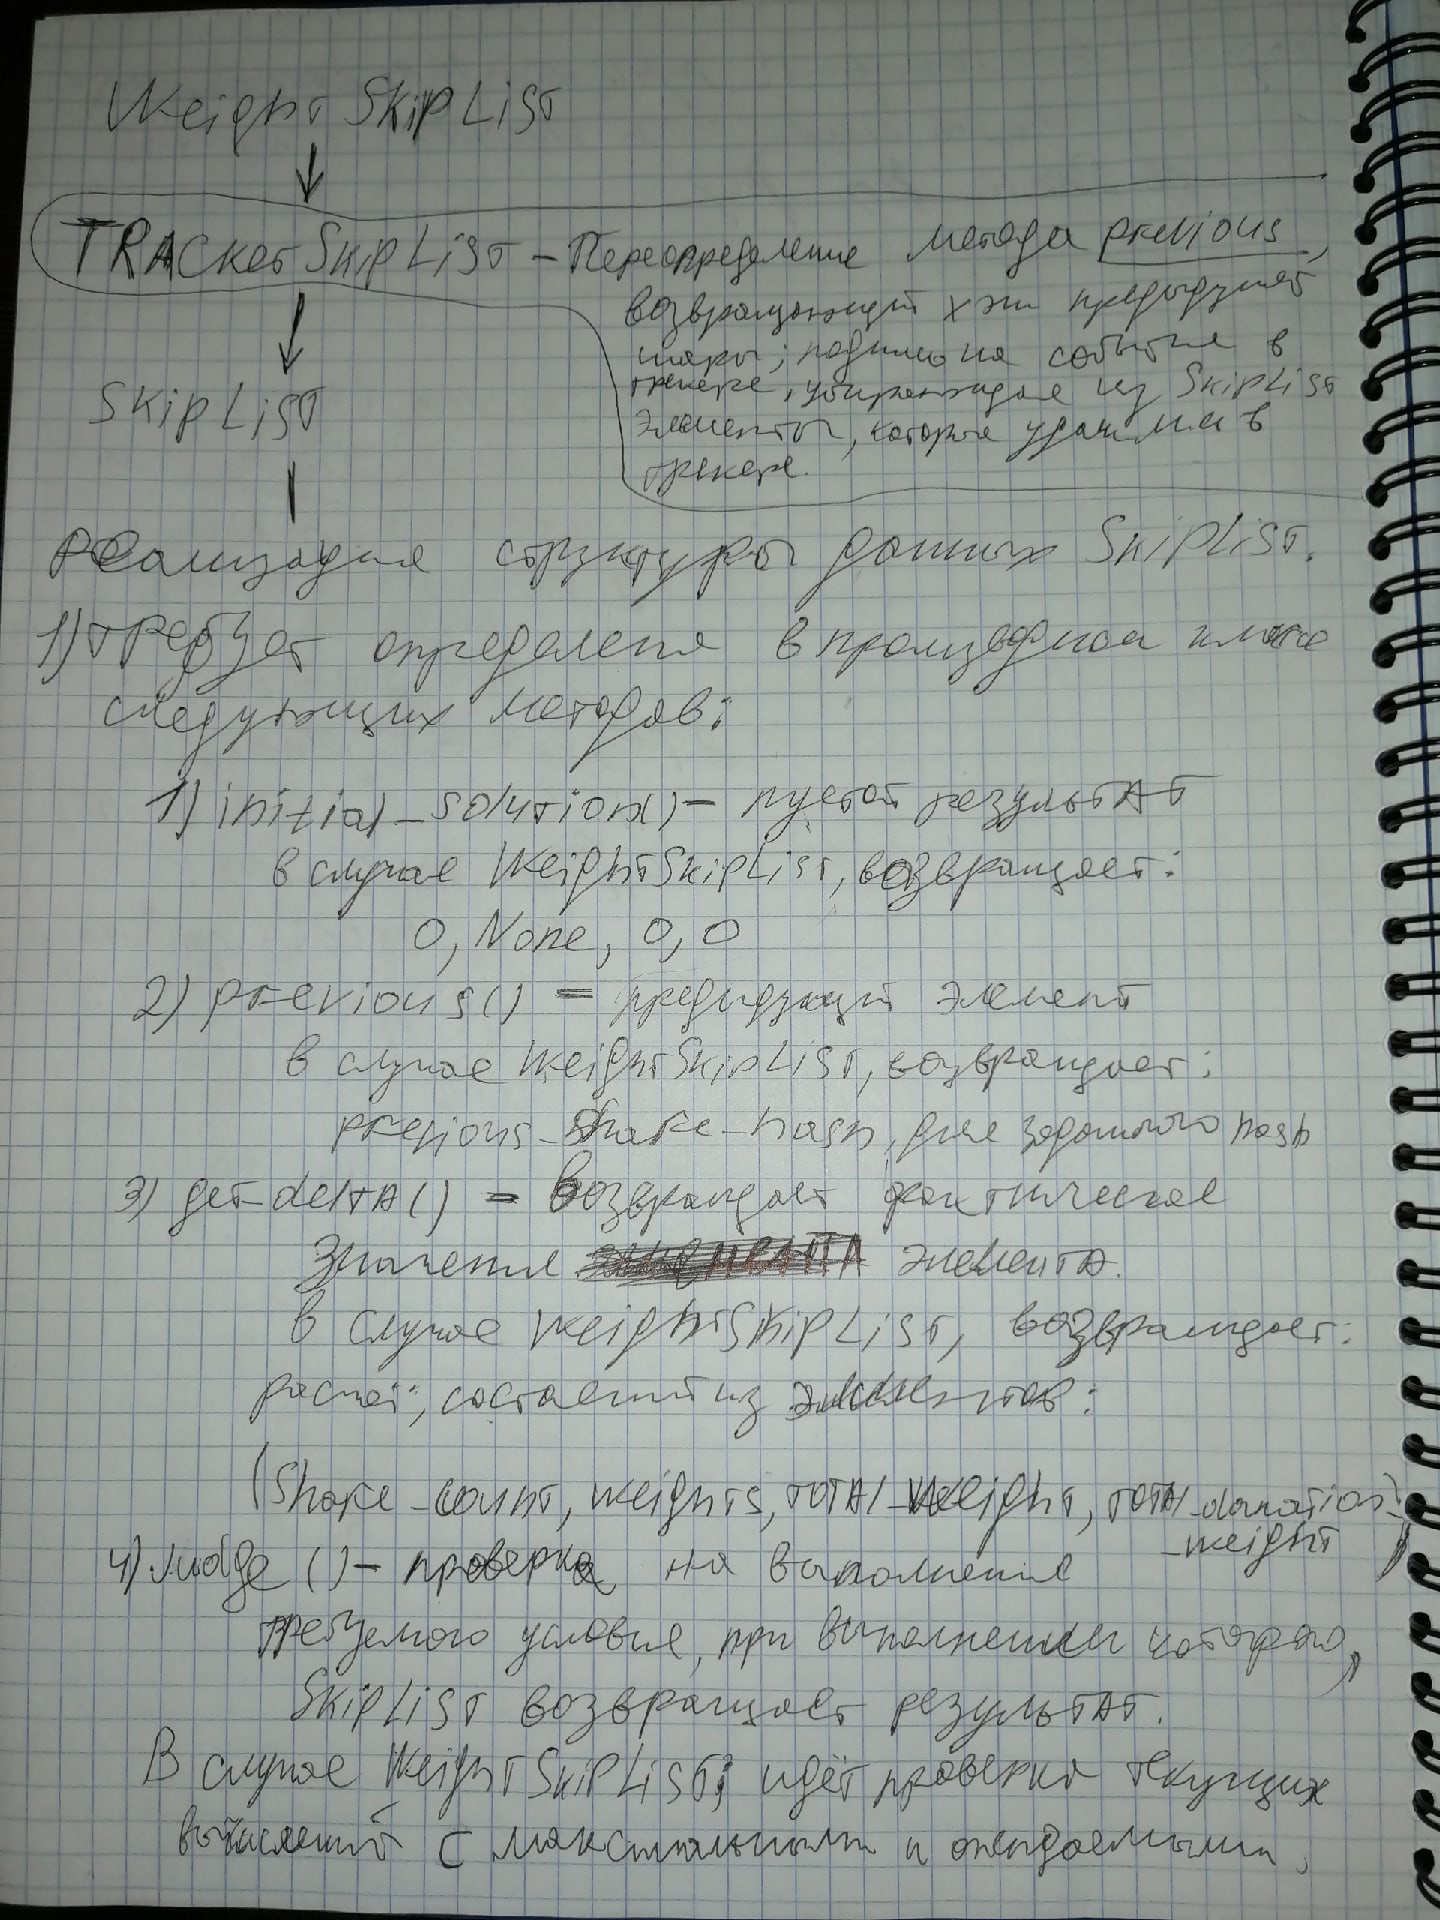 WeightSkipList
TRACKerSkipList - Переопределение метода previous,
возвращающий хэш предыдущей
шары; подписка на события в
трекере, убирающая из SkipList
элементы, которые удалили в
трекере.
SkipList
Реализация структуры данных SkipList.
1) требует определения в производном классе
следующих методов:
1) initial_solution() - пустой результат
в случае WeightSkipList, возвращает:
0, None, 0, 0
2) previous() - предыдущий элемент
в случае WeightSkipList, возвращает:
previous_share_hash, для заданного hash
3) get_delta() - возвращает фактическое
значение элемента.
в случае WeightSkipList, возвращает:
расчёт, состоящий из элементов:
(Share_count, weights, total_weight, total_donation_
_weight)
4) Judge() - проверка на выполнение
требуемого условия, при выполнении которого,
SkipList возвращает результат.
В случае WeightSkipList; идёт проверка текущих
вычислений с максимальными и ожидаемыми.